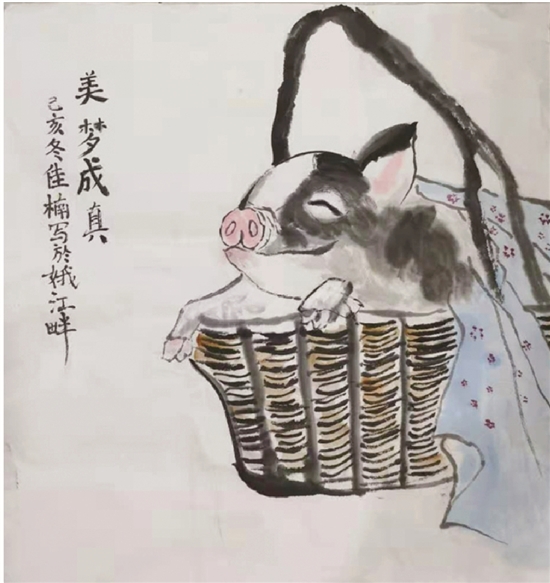 美梦成真
己亥冬佳楠写於娥江畔